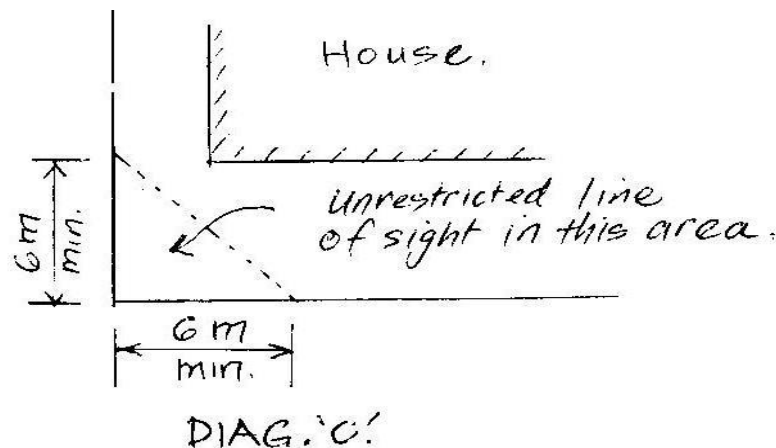 House.
Unrestricted line
of sight in this area.
6m
min.
6m
min.
DIAG. 'C'.